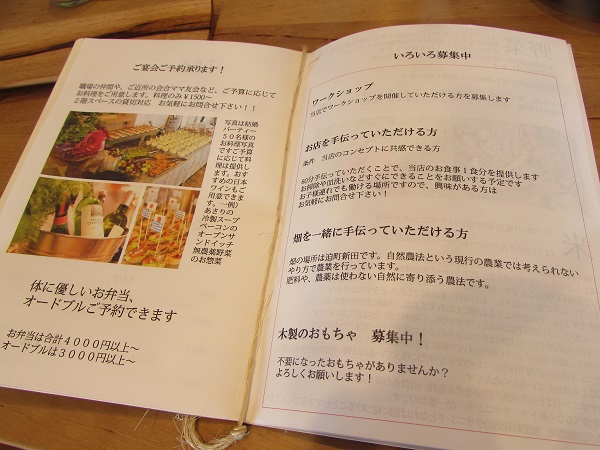 ご宴会ご予約承ります！
職場の仲間や、ご近所の会合ママ友会など、ご予算に応じて
お料理をご用意します。料理のみ￥1500～
２階スペースの貸切対応　お気軽にお問合せ下さい！！
写真は結婚
パーティー
５０名様の
お料理写真
ですご予算
に応じて料
理は提供し
ます。おす
すめの日本
ワインもご
用意できま
す。一例）
あさりの
冷製スープ
ベーコンの
オープンサ
ンドイッチ
無農薬野菜
のお惣菜
体に優しいお弁当、
オードブルご予約できます
お弁当は合計４０００円以上～
オードブルは３０００円以上～
いろいろ募集中
ワークショップ
当店でワークショップを開催していただける方を募集します
お店を手伝っていただける方
条件　当店のコンセプトに共感できる方
60分手伝っていただくことで、当店のお食事１食分を提供します
お掃除や皿洗いなどすぐにできることをお願いする予定です
お子様連れでも働ける場所ですので、興味がある方は
お気軽にお問合せ下さい！
畑を一緒に手伝っていただける方
畑の場所は迫町新田です。自然農法という現行の農業では考えられない
やり方で農業を行っています。
肥料や、農薬は使わない自然に寄り添う農法です。
木製のおもちゃ　募集中！
不要になったおもちゃがありませんか？
よろしくお願いします！